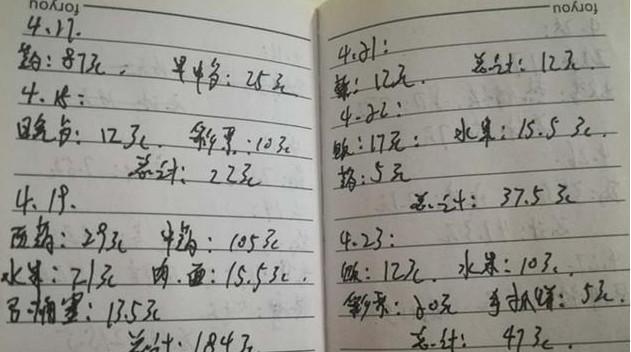 foryou
4.17.
药：87元. 早中餐：25元
4.18：
晚餐：12元. 彩票：10元
总计：22元
4.19.
西药：29元 中药：105元
水果：21元 肉.面：15.5元.
马桶塞：13.5元
总计：184元
foryou
4.21：
：12元. 总计：12元
4.22：
饭：17元. 水果：15.5元.
药：5元
总计：37.5元
4.23：
饭：12元. 水果：10元.
彩票：20元 手抓饼：5元.
总计：47元.